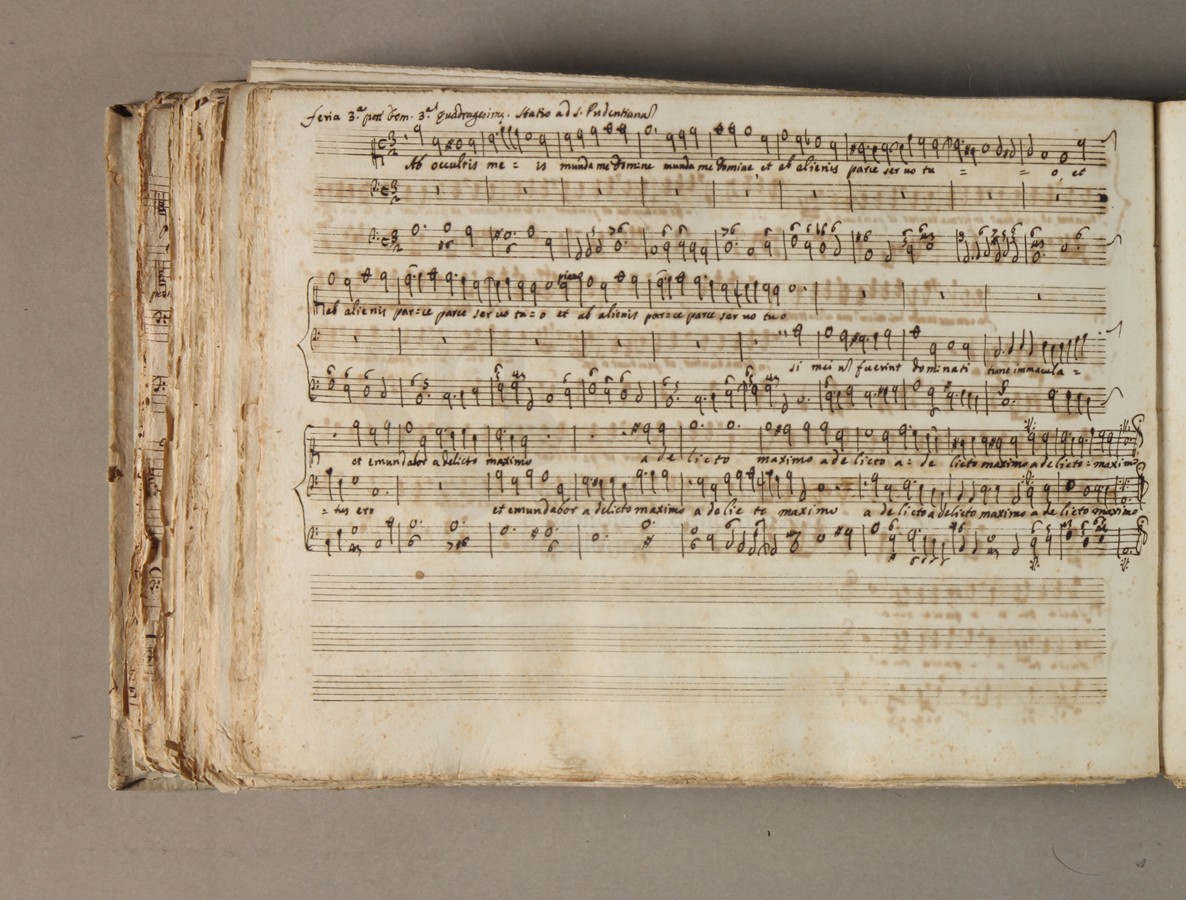 feria 3.a post Dom. 3.a quadragesimę. Statio ad S. Pudentianā
Ab occultis me = is munda me Domine munda me Domine, et ab alienis parce ser uo tu = = o, et
ab alienis par=ce parce ser uo tu=o et ab alienis par=ce parce ser uo tuo
piano
si mei nō fuerint dominati tunc immacula =
et emundabor a delicto maximo a de licto maximo a de licto a= de licto maximo a de licto = maximo
= tus ero et emundabor a delicto maximo a de lic to maximo a de licto a delicto maximo a de licto maximo